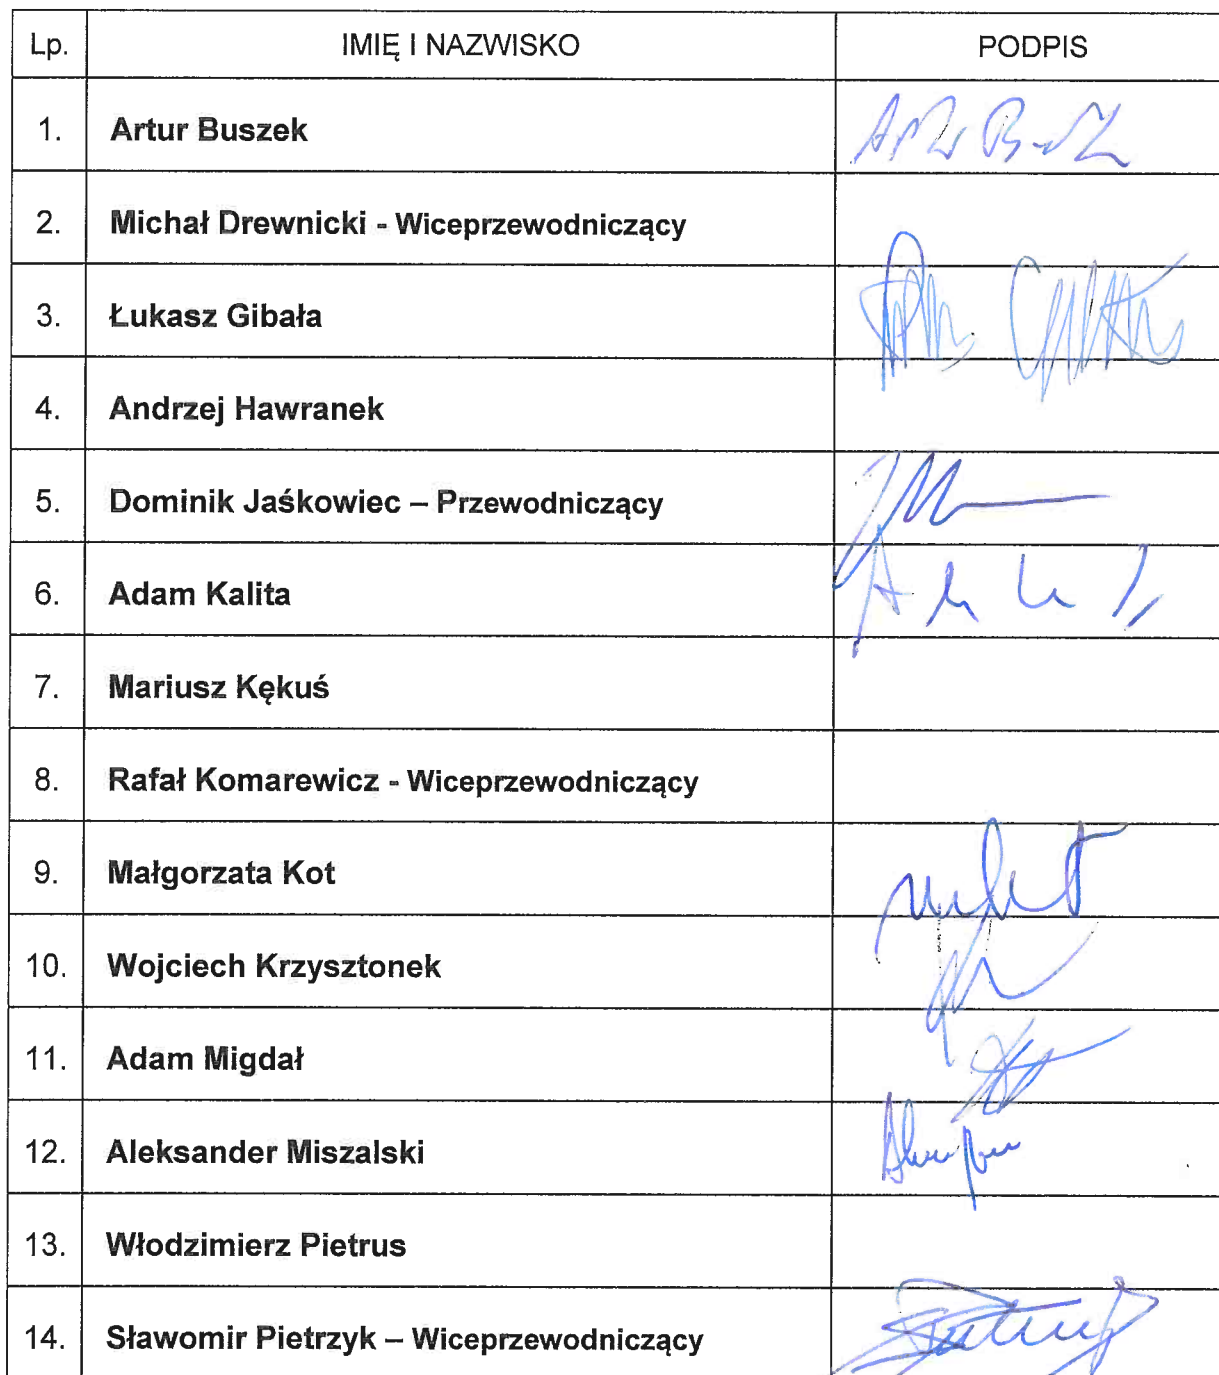 Lp. IMIĘ I NAZWISKO PODPIS
1. Artur Buszek
2. Michał Drewnicki - Wiceprzewodniczący
3. Łukasz Gibała
4. Andrzej Hawranek
5. Dominik Jaśkowiec – Przewodniczący
6. Adam Kalita
7. Mariusz Kękuś
8. Rafał Komarewicz - Wiceprzewodniczący
9. Małgorzata Kot
10. Wojciech Krzysztonek
11. Adam Migdał
12. Aleksander Miszalski
13. Włodzimierz Pietrus
14. Sławomir Pietrzyk – Wiceprzewodniczący